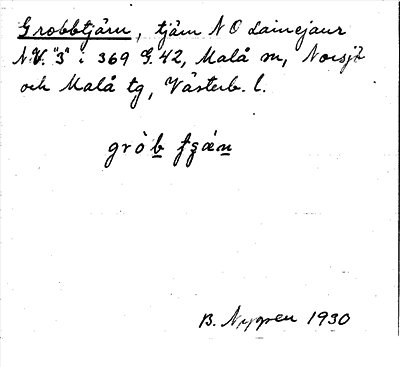 Grobbtjärn, tjärn N O Lainejaur
N.V. "3" i 369 G. 42, Malå sn, Norsjö
och Malå tg, Västerb. l.
gròb
B. Nygren 1930